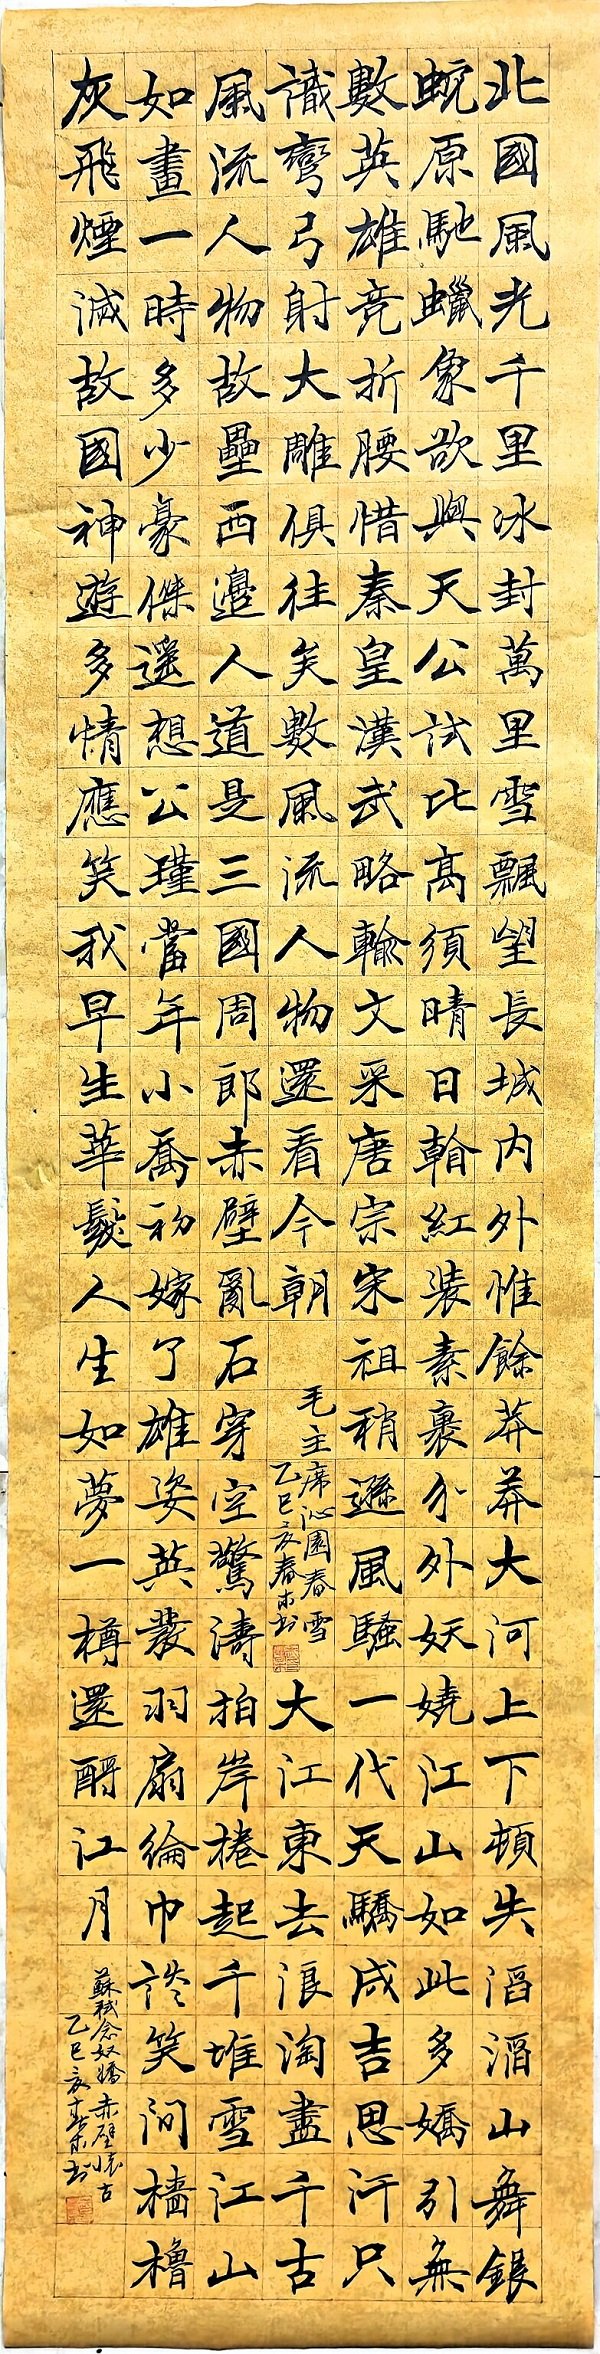 北國風光千里冰封萬里雪飄望長城内外惟餘莽莽大河上下頓失滔滔山舞銀
蛇原馳蠟象欲與天公試比高須晴日紅裝素裹分外妖嬈江山如此多嬌引無
數英雄竞折腰惜秦皇漢武略輸文采唐宗宋祖稍遜風騷一代天驕成吉思汗只
識彎弓射大雕俱往矣數風流人物還看今朝
毛主席沁園春雪
乙巳亥春末书
大江東去浪淘盡千古
風流人物故壘西邊人道是三國周郎赤壁亂石穿空驚濤拍岸捲起千堆雪江山
如畫一時多少豪傑遥想公瑾當年小喬初嫁了雄姿英發羽扇綸巾談笑間檣櫓
灰飛煙滅故國神遊多情應笑我早生華髮人生如夢一樽還酹江月
蘇軾念奴嬌赤壁懷古
乙巳亥春末书